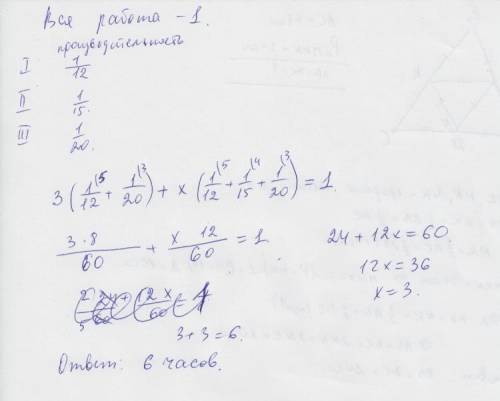 Вся работа – 1.
производительность
I 1/12
II 1/15.
III 1/20.
3(1\5/12 + 1\3/20) + x(1\5/12 + 1\4/15 + 1\3/20) = 1.
3·8/60 + x 12/60 = 1
24 + 12x = 60
12x = 36
x = 3.
3+3 = 6.
Ответ: 6 часов.